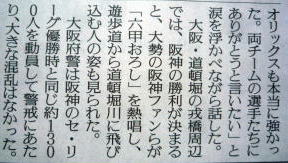 オリックスも本当に強かっ
た。両チームの選手たちに
ありがとうと言いたい」と
涙を浮かべながら話した。
大阪・道頓堀の戎橋周辺
では、阪神の勝利が決まる
と、大勢の阪神ファンらが
「六甲おろし」を熱唱し、
遊歩道から道頓堀川に飛び
込む人の姿も見られた。
大阪府警は阪神のセ・リ
ーグ優勝時と同じ約130
0人を動員して警戒にあた
り、大きな混乱はなかった。